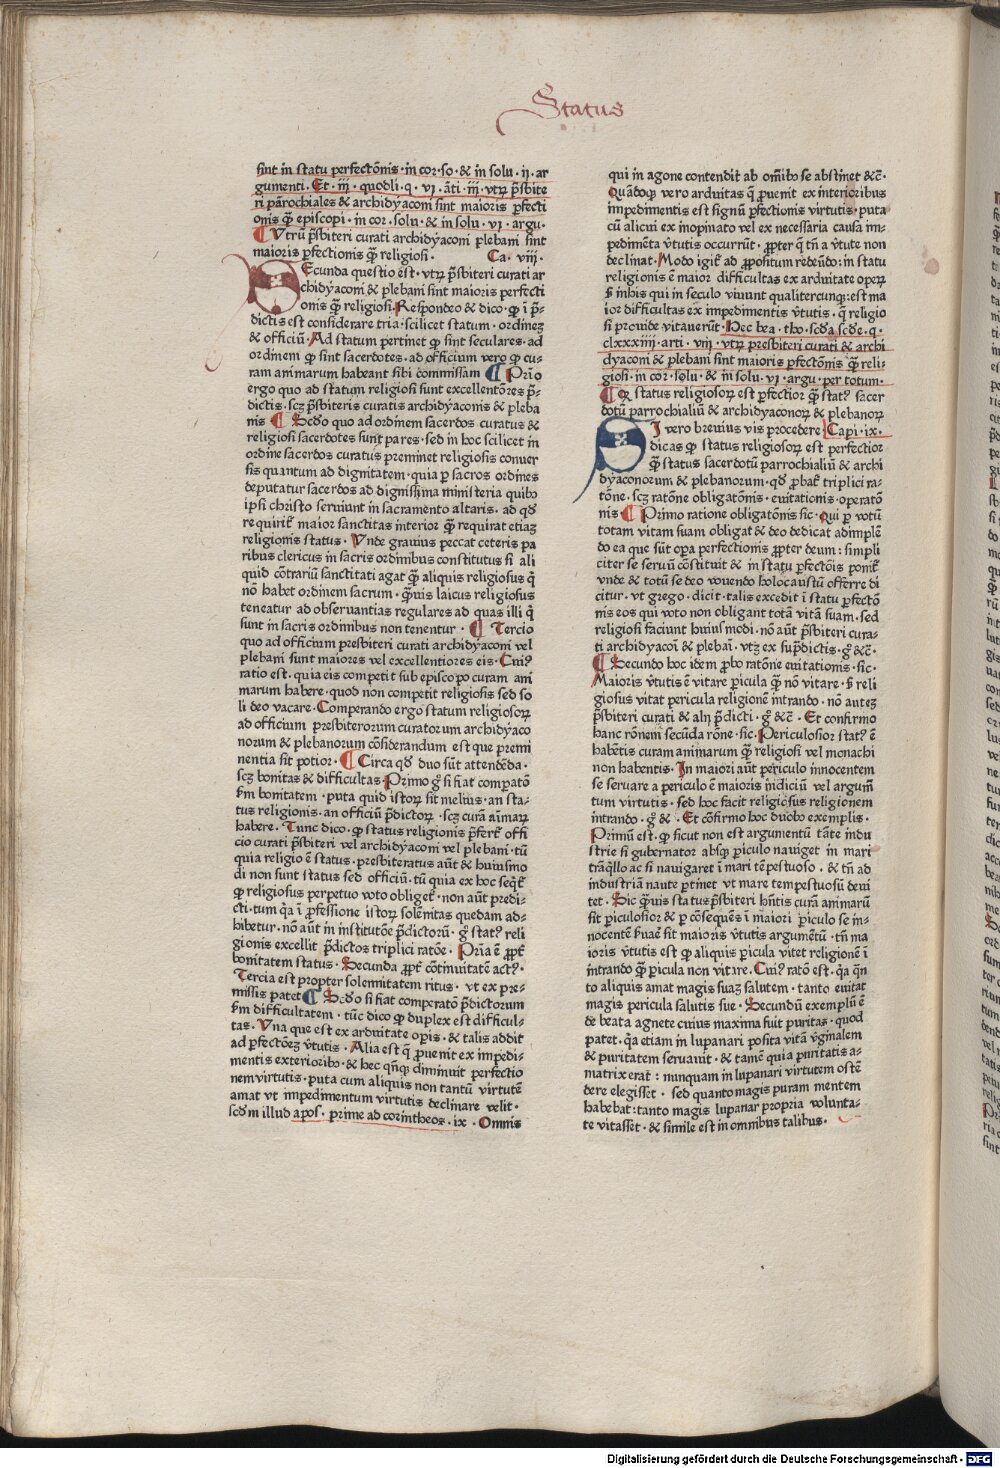 Status
sint in statu perfectōnis · in cor · so · & in solu · ii · ar
gumenti · Et · iii · quodli · q · vi · āti · iii · vtꝝ p̄sbite
ri parochiales & archidyaconi sint maioris perfecti
onis q̄ꝫ episcopi · in cor · solu · & in solu · vi · argu ·
¶ Vtrū p̄sbiteri curati archidyaconi plebani sint
maioris pfectionis q̄ꝫ religiosi · Ca · viii ·
SEcunda questio est · vtꝝ p̄sbiteri curati ar
chidyaconi & plebani sint maioris perfecti
onis q̄ꝫ religiosi · Respondeo & dico · ꝙ ī p̄-
dictis est considerare tria · scilicet statum · ordineꝫ
& officiū · Ad statum pertinet ꝙ sint seculares · ad
ordinem ꝙ sint sacerdotes · ad officium vero ꝙ cu-
ram animarum habeant sibi cōmissam ¶ Prīo
ergo quo ad statum religiosi sunt excellentōres p̄-
dictis · scꝫ p̄sbiteris curatis archidyaconis & pleba
nis ¶ Scd̄o quo ad ordinem sacerdos curatus &
religiosi sacerdotes sunt pares · sed in hoc scilicet in
ordine sacerdos curatus preminet religiosis conuer
sis quantum ad dignitatem · quia p sacros ordines
deputatur sacerdos ad dignissima ministeria quibꝰ
ipsi christo seruiunt in sacramento altaris · ad qd̄
requirit᷑ maior sanctitas interior q̄ꝫ requirat etiaꝫ
religionis status · Vnde grauius peccat ceteris pa
ribus clericus in sacris ordinibus constitutus si ali
quid cōtrariū sanctitati agat q̄ꝫ aliquis religiosus q̄
nō habet ordinem sacrum · q̄ꝫuis laicus religiosus
teneatur ad obseruantias regulares ad quas illi q̄
sunt in sacris ordinibus non tenentur · ¶ Tercio
quo ad officium presbiteri curati archidyaconi vel
plebani sunt maiores vel excellentiores eis · Cuiꝰ
ratio est · quia eis competit sub episcopo curam ani
marum habere · quod non competit religiosis sed so
li deo vacare · Comparando ergo statum religiosoꝝ
ad officium presbiterorum curatorum archidyaco
norum & plebanorum cōsiderandum est que premi
nentia sit potior · ¶ Circa qd̄ duo sūt attendēda ·
scꝫ bonitas & difficultas · Primo ḡ si fiat compatō
ẜm bonitatem · puta quid istoꝝ sit melius · an sta-
tus religionis · an officiū p̄dictoꝝ · scꝫ curā aīmaꝝ
habere · Tunc dico · ꝙ status religionis p̄fert᷑ offi
cio curati p̄sbiteri vel archidyaconi vel plebani · tū
quia religio ē status · presbiteratus aūt & huiusmo
di non sunt status sed officiū · tū quia ex hoc seqt᷑
ꝙ religiosus perpetuo voto obliget᷑ · non aūt predi-
cti · tum q̄a ī pfessione istoꝝ solēnitas quedam ad-
hibetur · nō aūt in institutōe p̄dictorū · ḡ statꝰ reli
gionis excellit p̄dictos triplici ratōe · Pria ē ꝓpt᷑
bonitatem status · Secunda ꝓpt᷑ cōtinuitatē actꝰ ·
Tercia est propter solemnitatem ritus · vt ex pre-
missis patet ¶ Scd̄o si fiat comperatō p̄dictorum
ẜm difficultatem · tūc dico ꝙ duplex est difficul-
tas · Vna que est ex arduitate opis · & talis addit
ad pfectōeꝫ v̄tutis · Alia est q̄ puenit ex impedi-
mentis exterioribꝰ · & hec qn̄qꝫ diminuit perfectio
nem virtutis · puta cum aliquis non tantū virtutē
amat vt impedimentum virtutis declinare velit ·
scd̄m illud apos · prime ad corintheos · ix · Omnis
qui in agone contendit ab om̄ibꝰ se abstinet &c̄ ·
Quādoqꝫ vero arduitas q̄ prouenit ex interioribus
impedimentis est signū pfectionis virtutis · puta
cū alicui ex inopinato vel ex necessaria causa im-
pedimēta v̄tutis occurrūt · ꝓpter q̄ tn̄ a v̄tute non
declinat · Modo igit᷑ ad ꝓpositum redeūdo : in statu
religionis ē maior difficultas ex arduitate opeꝝ
ẜ in his qui in seculo viuunt qualitercunqꝫ : est ma
ior difficultas ex impedimentis v̄tutis · q̄ religio
si prouide vitauerūt · Hec bea · tho · scd̄a scd̄e · q ·
clxxxiiii · arti · viii · vtꝝ presbiteri curati & archi
dyaconi & plebani sint maioris pfectōnis q̄ꝫ reli-
giosi · in cor · solu · & in solu · vi · argu · per totum ·
¶ Qꝙ status religiosoꝝ est perfectior q̄ꝫ statꝰ sacer
dotū parrochialiū & archidyaconoꝝ & plebanoꝝ
SI vero breuius vis procedere · Capi · ix ·
dicas ꝙ status religiosoꝝ est perfectior
q̄ꝫ status sacerdotū parrochialiū & archi
dyaconorum & plebanorum · qd̄ pbat᷑ triplici ra-
tōne · scꝫ ratōne obligatōnis · euitationis · operatō
nis ¶ Primo ratione obligatōnis sic · Qui p votū
totam vitam suam obligat & deo dedicat adimplē
do ea que sūt opa perfectionis ꝓpter deum : simpli
citer se seruū cōstituit & in statu pfectōis ponit᷑
vnde & totū se deo vouendo holocaustū offerre di
citur · vt grego · dicit · talis excedit ī statu pfectō
nis eos qui voto non obligant totā vitā suam · sed
religiosi faciunt huiusmodi · nō aūt p̄sbiteri cura-
ti archidyacoī & plebaī · vtꝫ ex sup̄dictis · ḡ &c̄ ·
¶ Secundo hoc idem pbo ratōne euitationis · sic ·
Maioris v̄tutis ē vitare picula q̄ꝫ nō vitare · ẜ reli
giosus vitat pericula religionē intrando · nō auteꝫ
p̄sbiteri curati & alij p̄dicti · ḡ &c̄ · Et confirmo
hanc rōnem secūda rōne · sic · Periculosior statꝰ ē
habētis curam animarum q̄ꝫ religiosi vel monachi
non habentis · In maiori aūt periculo innocentem
se seruare a periculo ē maioris īndiciū vel argum̄
tum virtutis · sed hoc facit religiosus religionem
intrando · ḡ & · Et cōfirmo hoc duobꝰ exemplis ·
Primū est · ꝙ sicut non est argumentū tāte indu
strie si gubernator absqꝫ piculo nauiget in mari
trāqllo ac si nauigaret ī mari tēpestuoso · & tn̄ ad
industriā naute ptinet vt mare tempestuosū deui
tet · Sic q̄ꝫuis status p̄sbiteri hn̄tis curā animarū
sit piculosior & p cōsequēs ī maiori piculo se in-
nocentē ẜuaē sit maioris v̄tutis argumētū · tn̄ ma
ioris v̄tutis est ꝙ aliquis picula vitet religionē ī
intrando q̄ꝫ picula non vitare · Cuiꝰ ratō est · q̄a qn̄
to aliquis amat magis suaꝫ salutem · tanto euitat
magis pericula salutis sue · Secundū exemplū ē
de beata agnete cuius maxima fuit puritas · quod
patet · q̄a etiam in lupanari posita vitā v̄ginalem
& puritatem seruauit · & tamē quia puritatis a-
matrix erat : nunquam in lupanari virtutem ostē
dere elegisset · sed quanto magis puram mentem
habebat : tanto magis lupanar propria volunta-
te vitasset · & simile est in omnibus talibus ·
Digitalisierung gefördert durch die Deutsche Forschungsgemeinschaft - DFG